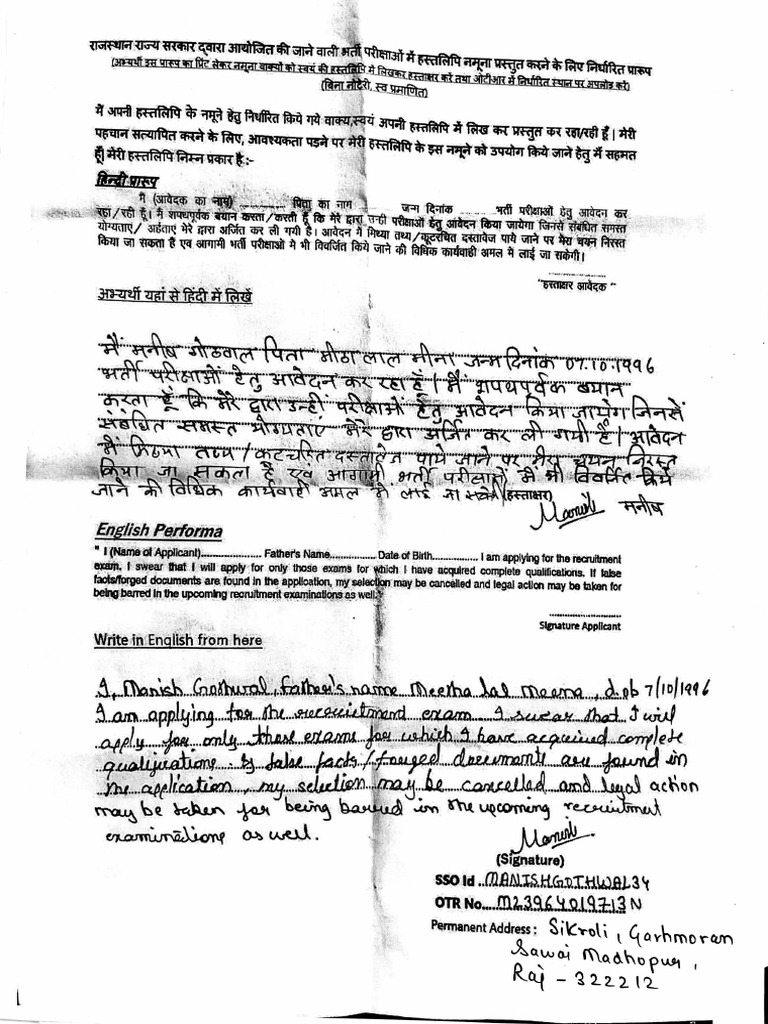 राजस्थान राज्य सरकार द्वारा आयोजित की जाने वाली भर्ती परीक्षाओं में हस्तलिपि नमूना प्रस्तुत करने के लिए निर्धारित प्रारूप
(अभ्यर्थी इस प्रारूप का प्रिंट लेकर नमूना वाक्यों को स्वयं की हस्तलिपि में लिखकर हस्ताक्षर करें तथा ओटीआर में निर्धारित स्थान पर अपलोड करें)
(बिना नोटेरी, स्व प्रमाणित)
मैं अपनी हस्तलिपि के नमूने हेतु निर्धारित किये गये वाक्य,स्वयं अपनी हस्तलिपि में लिख कर प्रस्तुत कर रहा/रही हूँ | मेरी
पहचान सत्यापित करने के लिए, आवश्यकता पड़ने पर मेरी हस्तलिपि के इस नमूने को उपयोग किये जाने हेतु मैं सहमत
हूँ| मेरी हस्तलिपि निम्न प्रकार है :-
हिन्दी प्रारूप
मैं (आवेदक का नाम) .................. पिता का नाम .................. जन्म दिनांक .................. भर्ती परीक्षाओं हेतु आवेदन कर
रहा/रही हूँ। मैं शपथपूर्वक बयान करता/करती हूँ कि मेरे द्वारा उन्हीं परीक्षाओं हेतु आवेदन किया जायेगा जिनसे संबंधित समस्त
योग्यताएं/ अर्हताएं मेरे द्वारा अर्जित कर ली गयी है। आवेदन में मिथ्या तथ्य/कूटरचित दस्तावेज पाये जाने पर मेरा चयन निरस्त
किया जा सकता हैं एवं आगामी भर्ती परीक्षाओं मे भी विवर्जित किये जाने की विधिक कार्यवाही अमल में लाई जा सकेगी।
"हस्ताक्षर आवेदक "
अभ्यर्थी यहां से हिंदी में लिखें
मैं मनीष गोठवाल पिता मीठा लाल मीना जन्म दिनांक 07.10.1996
भर्ती परीक्षाओं हेतु आवेदन कर रहा हूँ। मैं शपथपूर्वक बयान
करता हूँ कि मेरे द्वारा उन्हीं परीक्षाओं हेतु आवेदन किया जायेग जिनसे
संबंधित समस्त योग्यताएं मेरे द्वारा अर्जित कर ली गयी है। आवेदन
में मिथ्या तथ्य / कटचरित दस्तावेज पाये जाने पर मेरा चयन निरस्त
किया जा सकता है एवं आगामी भर्ती परीक्षाओं मे भी विवर्जित किये
जाने की विधिक कार्यवाही अमल में लाई जा सकेगी (हस्ताक्षर)
Manish मनीष
English Performa
" I (Name of Applicant)..................... Father's Name................ Date of Birth................ I am applying for the recruitment
exam. I swear that I will apply for only those exams for which I have acquired complete qualifications. If false
facts/forged documents are found in the application, my selection may be cancelled and legal action may be taken for
being barred in the upcoming recruitment examinations as well."
Signature Applicant
Write in English from here
I, Manish Gothwal, father's name Meetha Lal Meena, d.ob 7/10/1996
I am applying for the recruitment exam. I swear that I will
apply for only those exams for which I have acquired complete
qualifications. If false facts/forged documents are found in
the application, my selection may be cancelled and legal action
may be taken for being barred in the upcoming recruitment
examinations as well.
Manish
(Signature)
SSO Id ..MANISHGOTHWAL34
OTR No....M23964019713N
Permanent Address : Sikroli, Garhmoran
Sawai Madhopur,
Raj - 322212